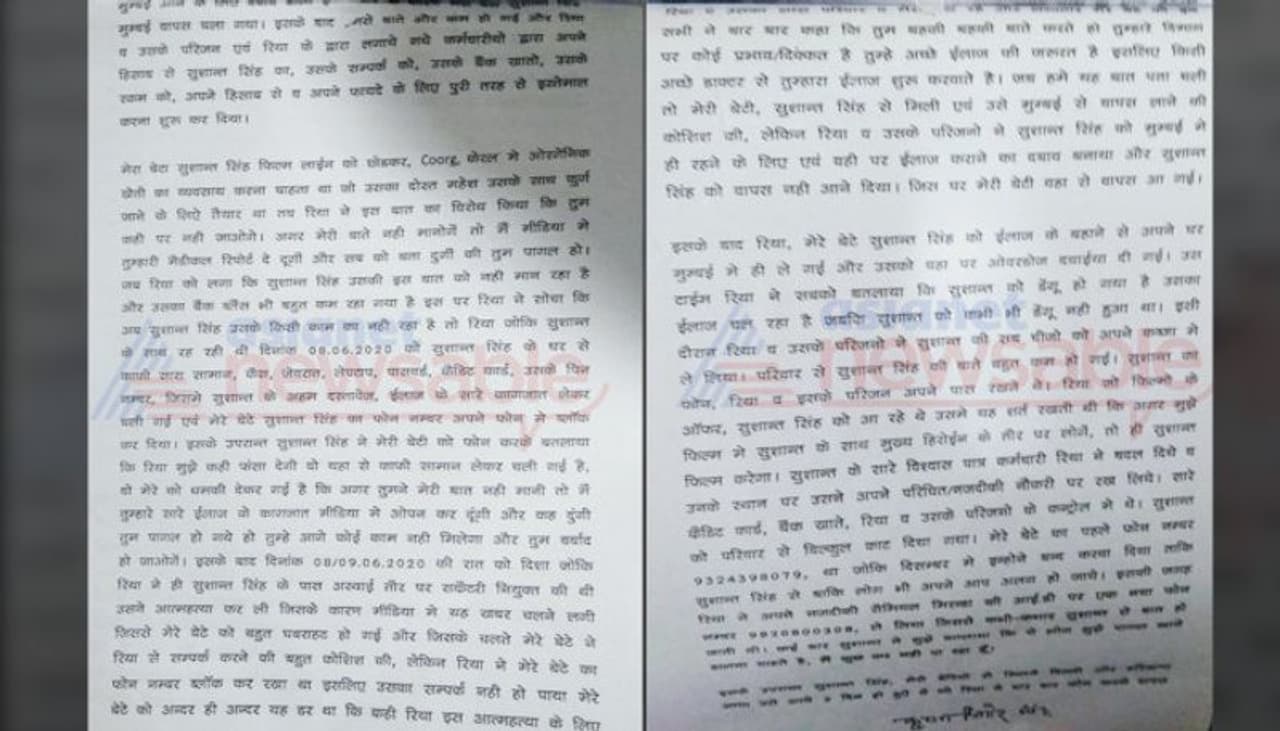 मुम्बई वापस चला गया। इसके बाद बातें और कम हो गई और रिया
व उसके परिजन एवं रिया के द्वारा लगाये गये कर्मचारीयो द्वारा अपने
हिसाब से सुशान्त सिंह का, उसके सम्पर्क को, उसके बैंक खातो, उसके
रकम को, अपने हिसाब से व अपने फायदे के लिए पुरी तरह से इस्तेमाल
करना शुरू कर दिया।
मेरा बेटा सुशान्त सिंह फिल्म लाईन को छोडकर, Coorg, केरल मे ओरगेनिक
खेती का व्यवसाय करना चाहता था जो उसका दोस्त महेश उसके साथ कुर्ग
जाने के लिऐ तैयार था तब रिया ने इस बात का विरोध किया कि तुम
कही पर नही जाओगे। अगर मेरी बाते नही मानोगें तो मैं मीडिया मे
तुम्हारी मेडीकल रिपोर्ट दे दूगी और सब को बता दुगी की तुम पागल हो।
जब रिया को लगा कि सुशान्त सिंह उसकी इस बात को नही मान रहा है
और उसका बैंक बैलेंस भी बहुत कम रहा गया है इस पर रिया ने सोचा कि
अब सुशान्त सिंह उसके किसी काम का नही रहा है तो रिया जोकि सुशान्त
के साथ रह रही थी दिनांक 08.06.2020 को सुशान्त सिंह के घर से
काफी सारा सामान, कैश, जेवरात, लेपटाप, पासवर्ड, क्रैडिट कार्ड, उसके पिन
नम्बर, जिसमे सुशान्त के अहम दस्तावेज, ईलाज के सारे कागजात लेकर
चली गई एवं मेरे बेटे सुशान्त सिंह का फोन नम्बर अपने फोन मे ब्लॉक
कर दिया। इसके उपरान्त सुशान्त सिंह ने मेरी बेटी को फोन करके बतलाया
कि रिया मुझे कही फंसा देगी वो यहा से काफी सामान लेकर चली गई है,
वो मेरे को धमकी देकर गई है कि अगर तुमने मेरी बात नही मानी तो मैं
तुम्हारे सारे ईलाज के कागजात मीडिया मे ओपन कर दूंगी और कह दुंगी
तुम पागल हो गये हो तुम्हे आगे कोई काम नही मिलेगा और तुम बर्बाद
हो जाओगें। इसके बाद दिनांक 08/09.06.2020 की रात को दिशा जोकि
रिया ने ही सुशान्त सिंह के पास अस्थाई तौर पर सक्रैटरी नियुक्त की थी
उसने आत्महत्या कर ली जिसके कारण मीडिया मे यह खबर चलने लगी
जिससे मेरे बेटे को बहुत घबराहट हो गई और जिसके चलते मेरे बेटे ने
रिया से सम्पर्क करने की बहुत कोशिश की, लेकिन रिया ने मेरे बेटे का
फोन नम्बर ब्लॉक कर रखा था इसलिए उसका सम्पर्क नही हो पाया मेरे
बेटे को अन्दर ही अन्दर यह डर था कि कही रिया इस आत्महत्या के लिए
सभी ने बार बार कहा कि तुम बहकी बहकी बाते करते हो तुम्हारे दिमाग
पर कोई प्रभाव/दिक्कत है तुम्हे अच्छे ईलाज की जरूरत है इसलिए किसी
अच्छे डाक्टर से तुम्हारा ईलाज शुरू करवाते है। जब हमे यह बात पता चली
तो मेरी बेटी, सुशान्त सिंह से मिली एवं उसे मुम्बई से वापस लाने की
कोशिश की, लेकिन रिया व उसके परिजनो ने सुशान्त सिंह को मुम्बई मे
ही रहने के लिए एवं यही पर ईलाज कराने का दबाव बनाया और सुशान्त
सिंह को वापस नही आने दिया। जिस पर मेरी बेटी वहा से वापस आ गई।
इसके बाद रिया, मेरे बेटे सुशान्त सिंह को ईलाज के बहाने से अपने घर
मुम्बई मे ही ले गई और उसको वहा पर ओवरडोज दवाईया दी गई। उस
टाईम रिया ने सबको बतलाया कि सुशान्त को डेंगू हो गया है उसका
ईलाज चल रहा है जबकि सुशान्त को कभी भी डेंगू नही हुआ था। इसी
दौरान रिया व उसके परिजनो ने सुशान्त की सब चीजो को अपने कब्जा मे
ले लिया। परिवार से सुशान्त सिंह की बाते बहुत कम हो गई। सुशान्त का
फोन, रिया व इसके परिजन अपने पास रखते थे। रिया को फिल्मो के
ऑफर, सुशान्त सिंह को आ रहे थे उसमे यह शर्त रखती थी कि अगर मुझे
फिल्म मे सुशान्त के साथ मुख्य हिरोईन के तौर पर लोगें, तो ही सुशान्त
फिल्म करेगा। सुशान्त के सारे विश्वास पात्र कर्मचारी रिया ने बदल दिये व
उनके स्थान पर उसने अपने परिचित/नजदीकी नौकरी पर रख लिये। सारे
क्रैडिट कार्ड, बैंक खाते, रिया व उसके परिजनो के कन्ट्रोल मे थे। सुशान्त
को परिवार से बिल्कुल काट दिया गया। मेरे बेटे का पहले फोन नम्बर
9324398079, था जोकि दिसम्बर मे इन्होने बन्द करवा दिया ताकि
सुशान्त सिंह से बाकि लोग भी अपने आप अलग हो जाये। इसकी जगह
रिया ने अपने नजदीकी सैमियल मिरंडा की आई.डी पर एक नया फोन
नम्बर 9920800308, ले लिया जिससे कभी-कभार सुशान्त से बात हो
जाती थी। कई बार सुशान्त ने मुझे बतलाया कि ये लोग मुझे पागल
asianet
newsable
asianet
newsable